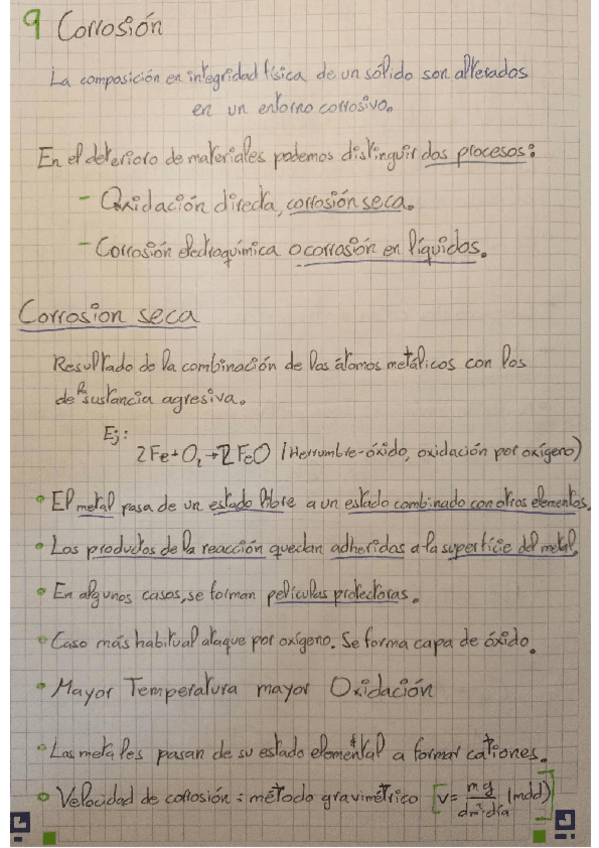 9 Corrosión
La composición en integridad física de un sólido son alterados
en un entorno corrosivo.
En el deterioro de materiales podemos distinguir dos procesos:
- Oxidación directa, corrosión seca.
- Corrosión electroquímica o corrosión en líquidos.
Corrosion seca
Resultado de la combinación de los átomos metálicos con los
de la sustancia agresiva.
Ej:
2Fe + O₂ → 2FeO (Herrumbre-óxido, oxidación por oxígeno)
• El metal pasa de un estado libre a un estado combinado con otros elementos.
• Los productos de la reacción quedan adheridos a la superficie del metal.
• En algunos casos, se forman películas protectoras.
• Caso más habitual ataque por oxígeno. Se forma capa de óxido.
• Mayor Temperatura mayor Oxidación
• Los metales pasan de su estado elemental a formar cationes.
• Velocidad de corrosión: método gravimétrico [v = mg / dm²·día (mdd)]